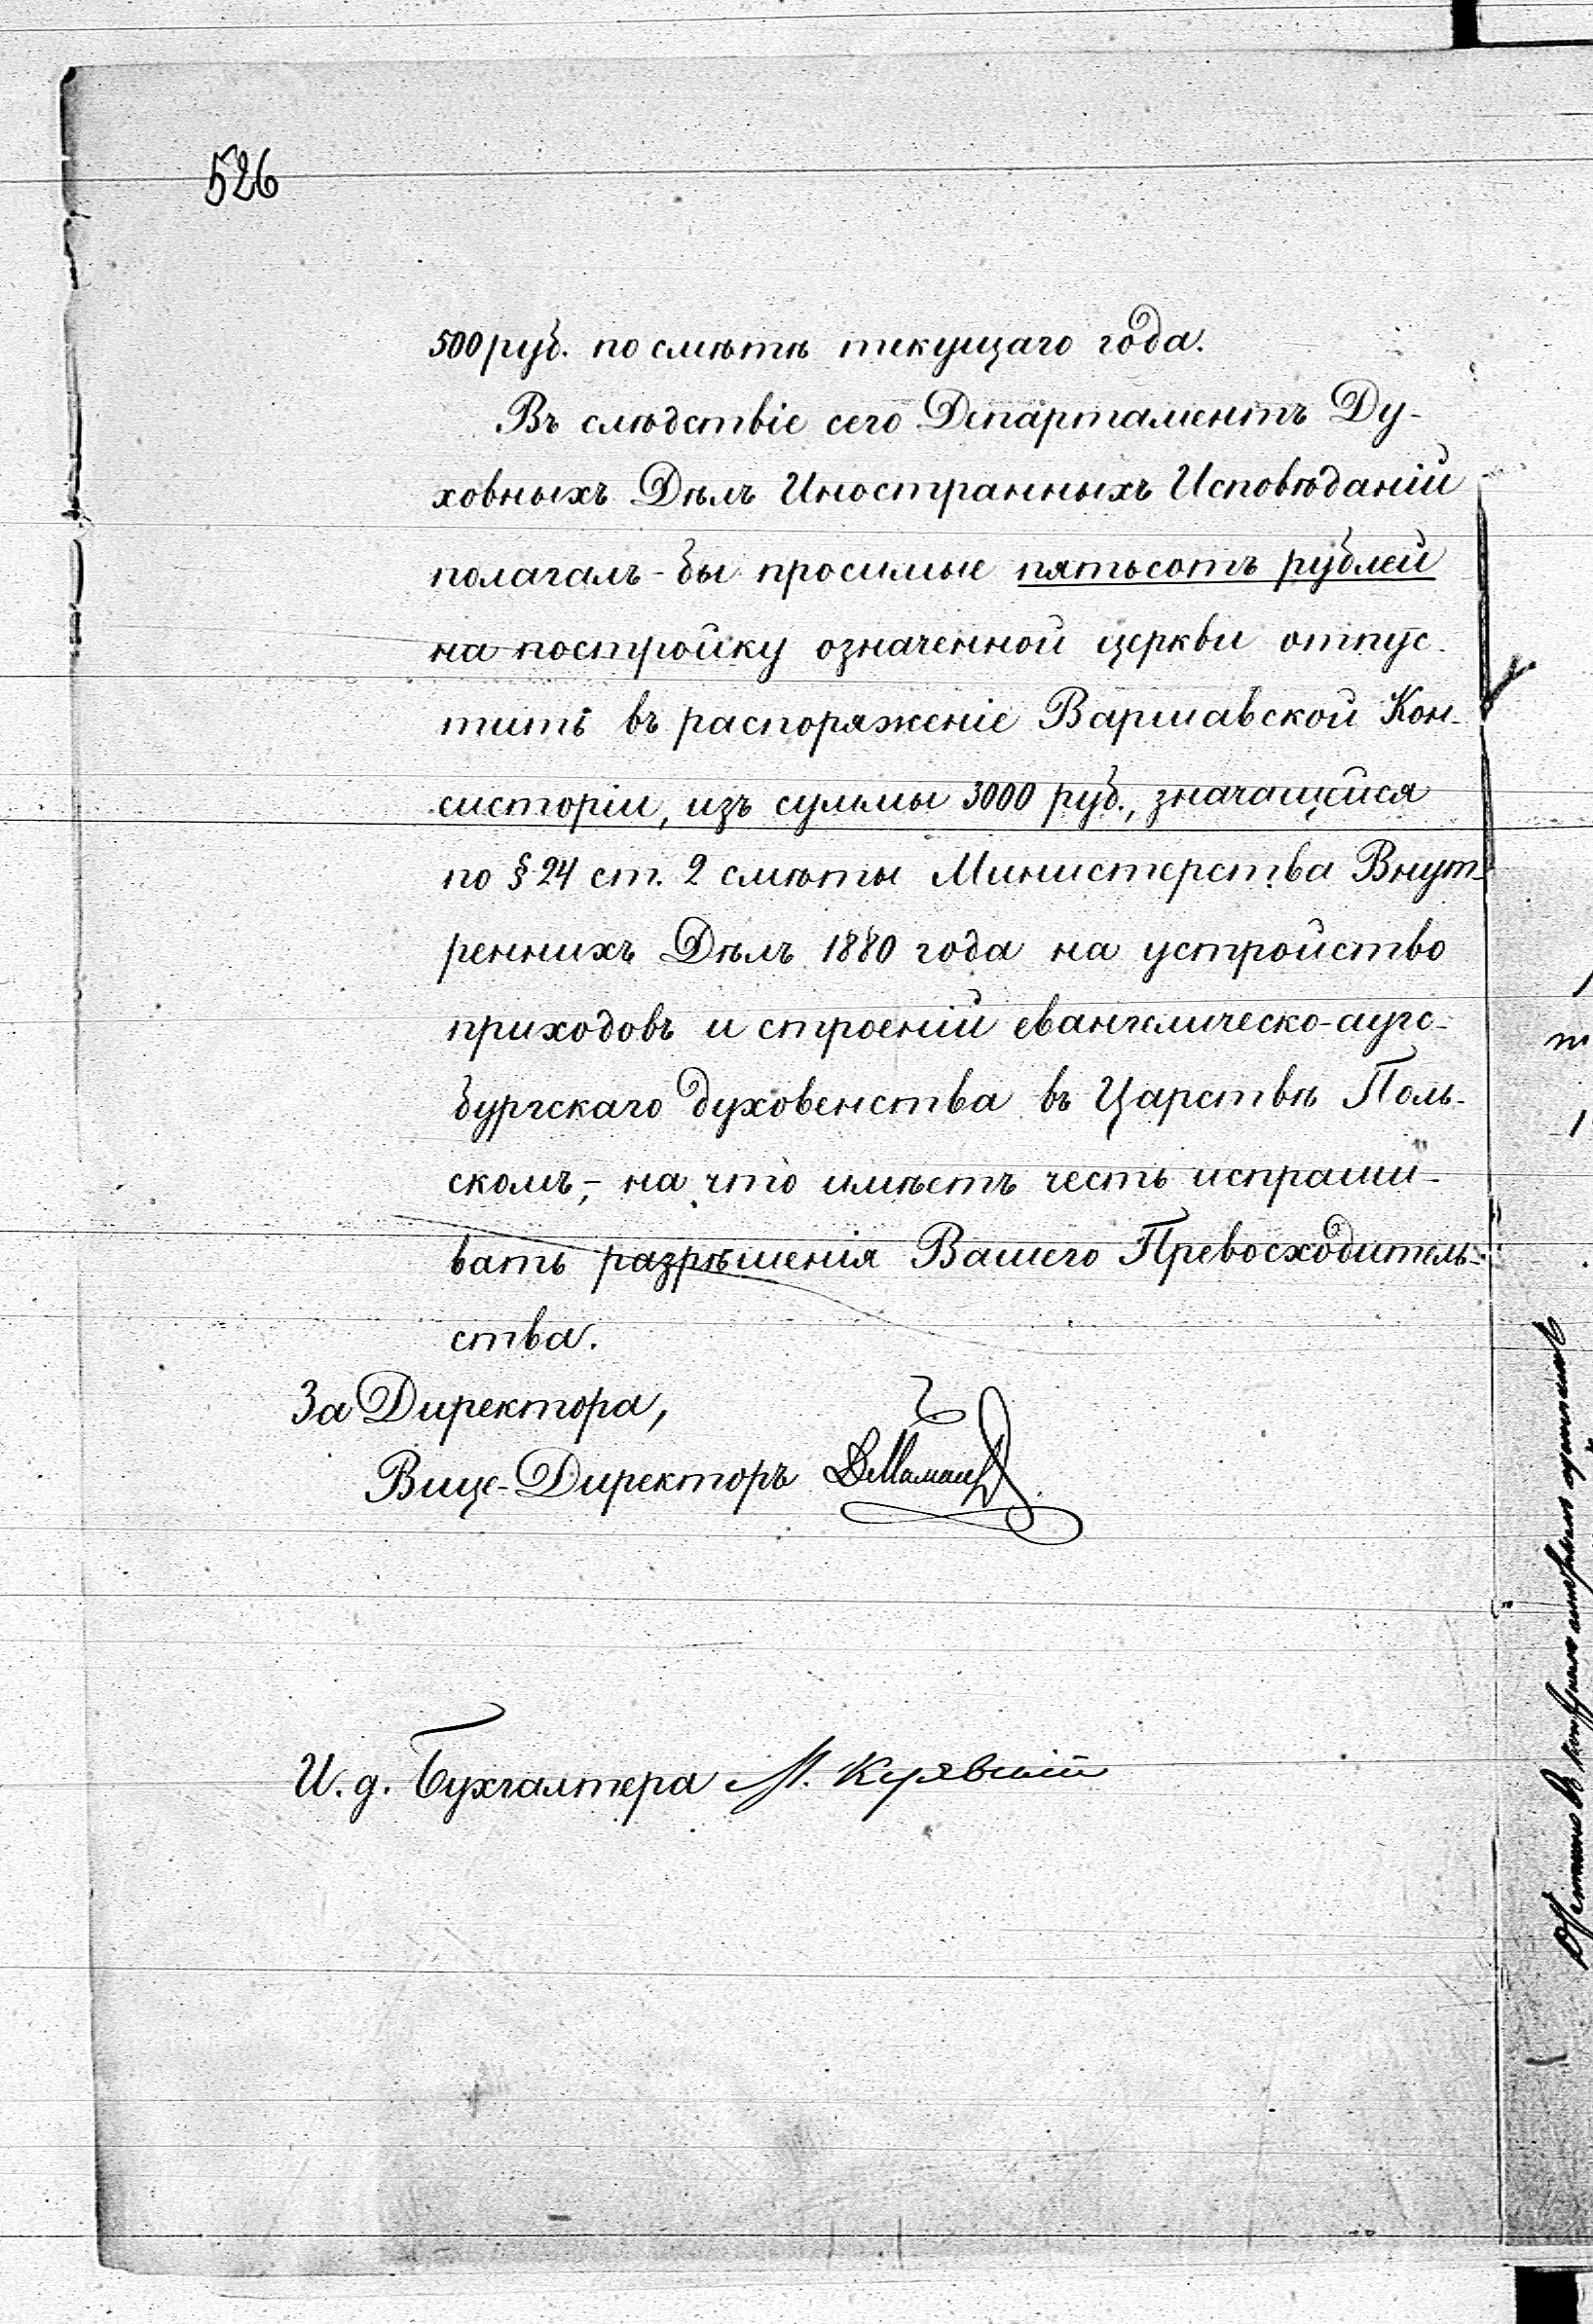 526
500 руб. по смѣтѣ текущаго года.
Въ слѣдствіе сего Департаментъ Ду-
ховныхъ Дѣлъ Иностранныхъ Исповѣданій
полагалъ-бы просимые пятьсотъ рублей
на постройку означенной церкви отпус-
тить въ распоряженіе Варшавской Кон-
систоріи, изъ суммы 3000 руб., значащейся
по § 24 ст. 2 смѣты Министерства Внут-
реннихъ Дѣлъ 1880 года на устройство
приходовъ и строеній евангелическо-аугс-
бургскаго духовенства въ Царствѣ Поль-
скомъ,- на что имѣетъ честь испраши-
вать разрѣшенія Вашего Превосходитель-
ства.
За Директора,
Вице-Директоръ
И. д. Бухгалтера М.